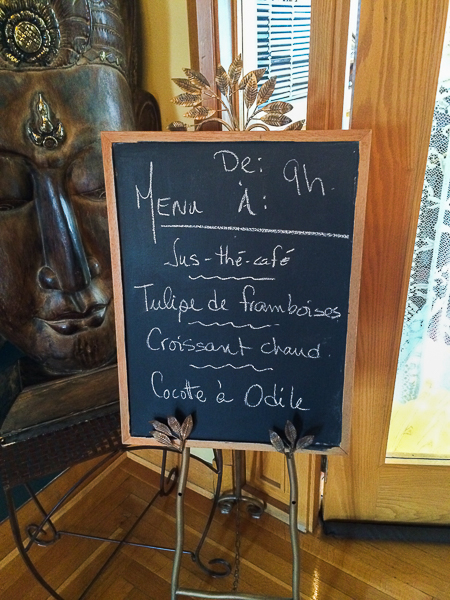 De: 9h
Menu À:
Jus-thé-café
Tulipe de framboises
Croissant chaud
Cocotte à Odile